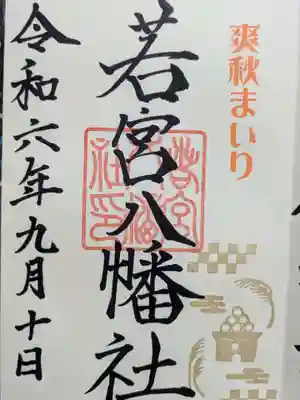 爽秋まいり
若宮八幡社
令和六年九月十日